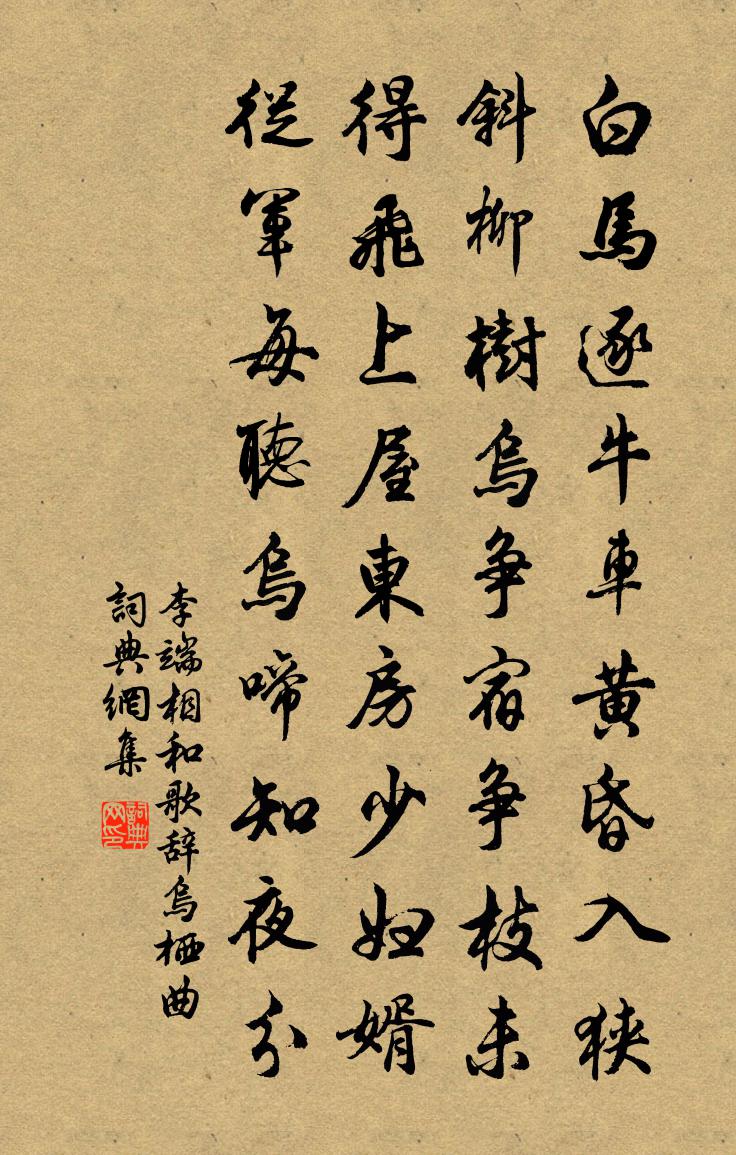 白馬逐牛車黄昏入狹
斜柳樹烏争宿争枝未
得飛上屋東房少婦婿
從軍每聽烏啼知夜分
李端相和歌辞烏栖曲
詞典網集
詞典网印